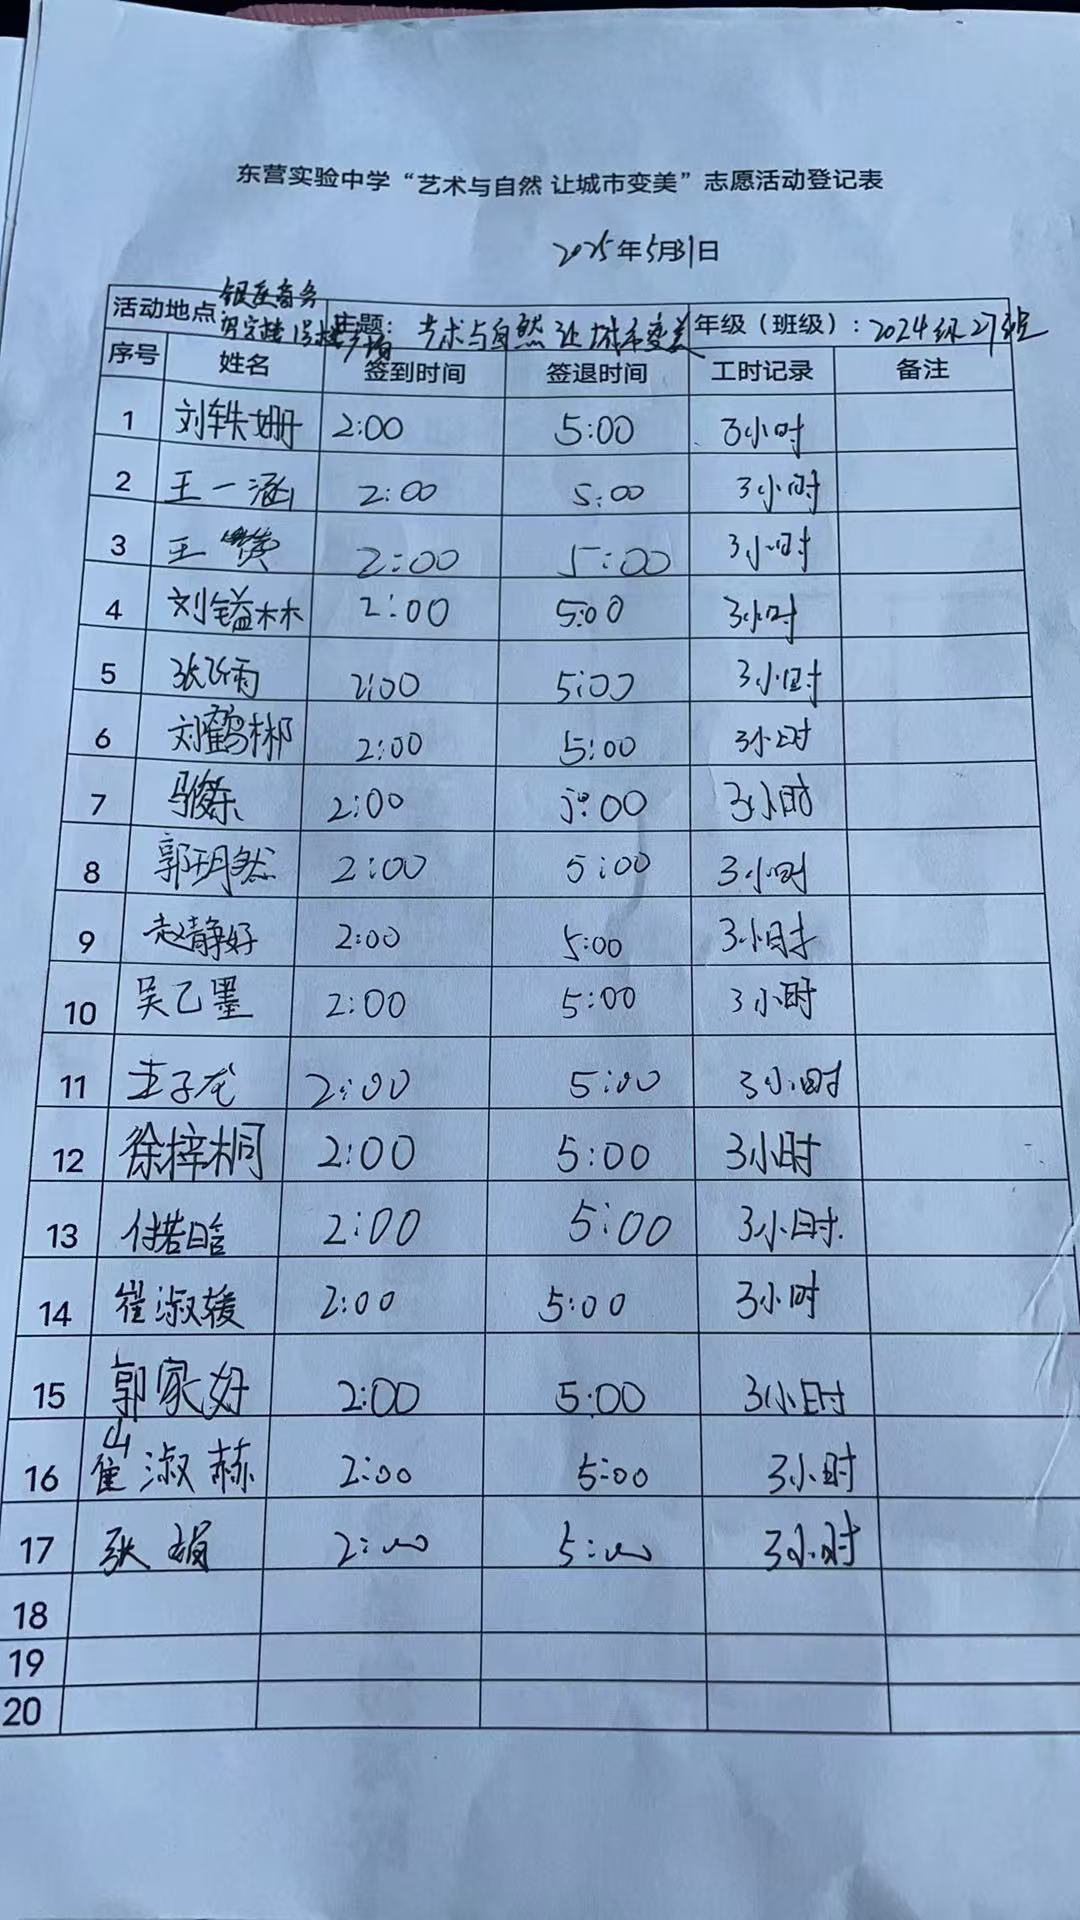 东营实验中学“艺术与自然 让城市变美”志愿活动登记表
2025年5月31日
活动地点 银座商务 主题： 艺术与自然 让城市变美 年级（班级）：2024级27班
序号 姓名 签到时间 签退时间 工时记录 备注
1 刘轶姗 2:00 5:00 3小时
2 王一涵 2:00 5:00 3小时
3 王 2:00 5:00 3小时
4 刘镒林 2:00 5:00 3小时
5 张 雨 2:00 5:00 3小时
6 刘鹤彬 2:00 5:00 3小时
7 2:00 5:00 3小时
8 郭玥然 2:00 5:00 3小时
9 赵静好 2:00 5:00 3小时
10 吴乙墨 2:00 5:00 3小时
11 子龙 2:00 5:00 3小时
12 徐梓桐 2:00 5:00 3小时
13 付若晗 2:00 5:00 3小时
14 崔淑媛 2:00 5:00 3小时
15 郭家好 2:00 5:00 3小时
16 崔淑赫 2:00 5:00 3小时
17 张娟 2:00 5:00 3小时
18
19
20